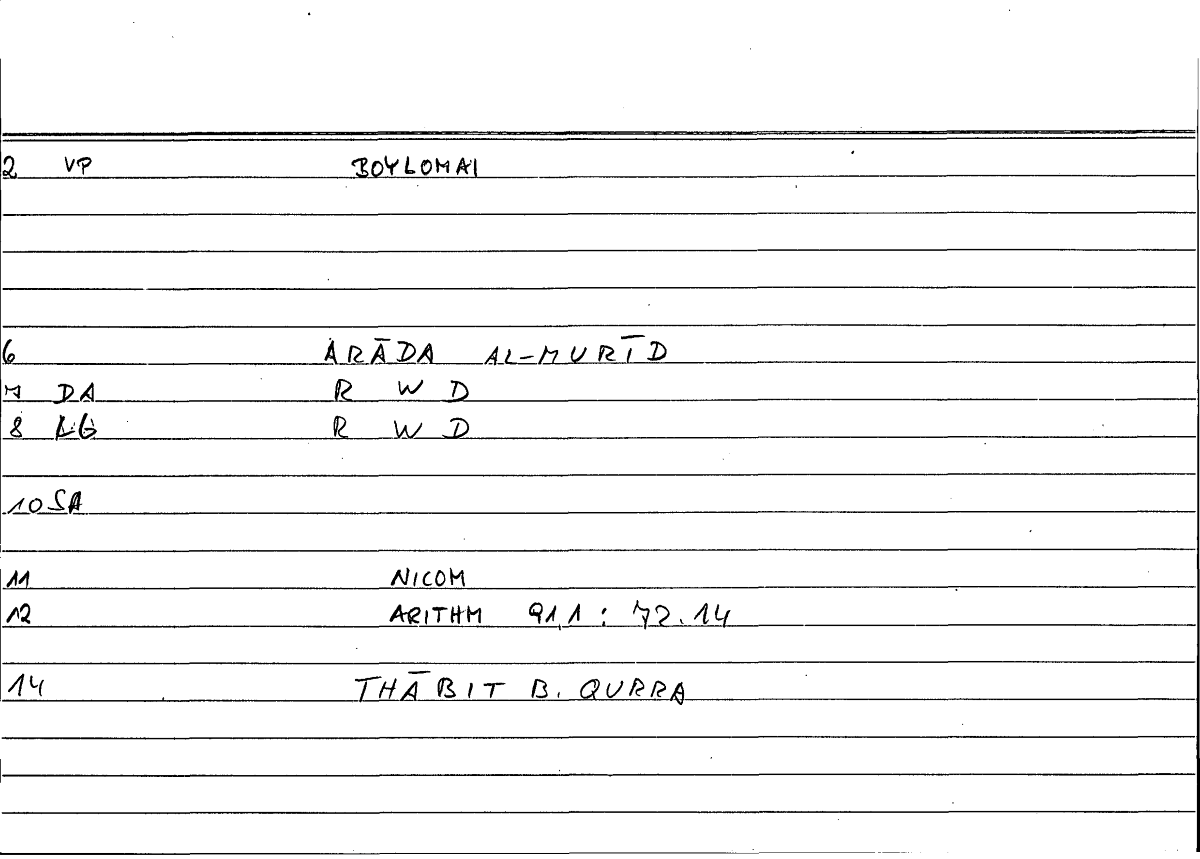 2 VP BOYLOMAI
6 ARĀDA AL-MURĪD
7 DA R W D
8 LG R W D
10 SA
11 NICOM
12 ARITHM 91,1 : 72.14
14 THĀBIT B. QURRA